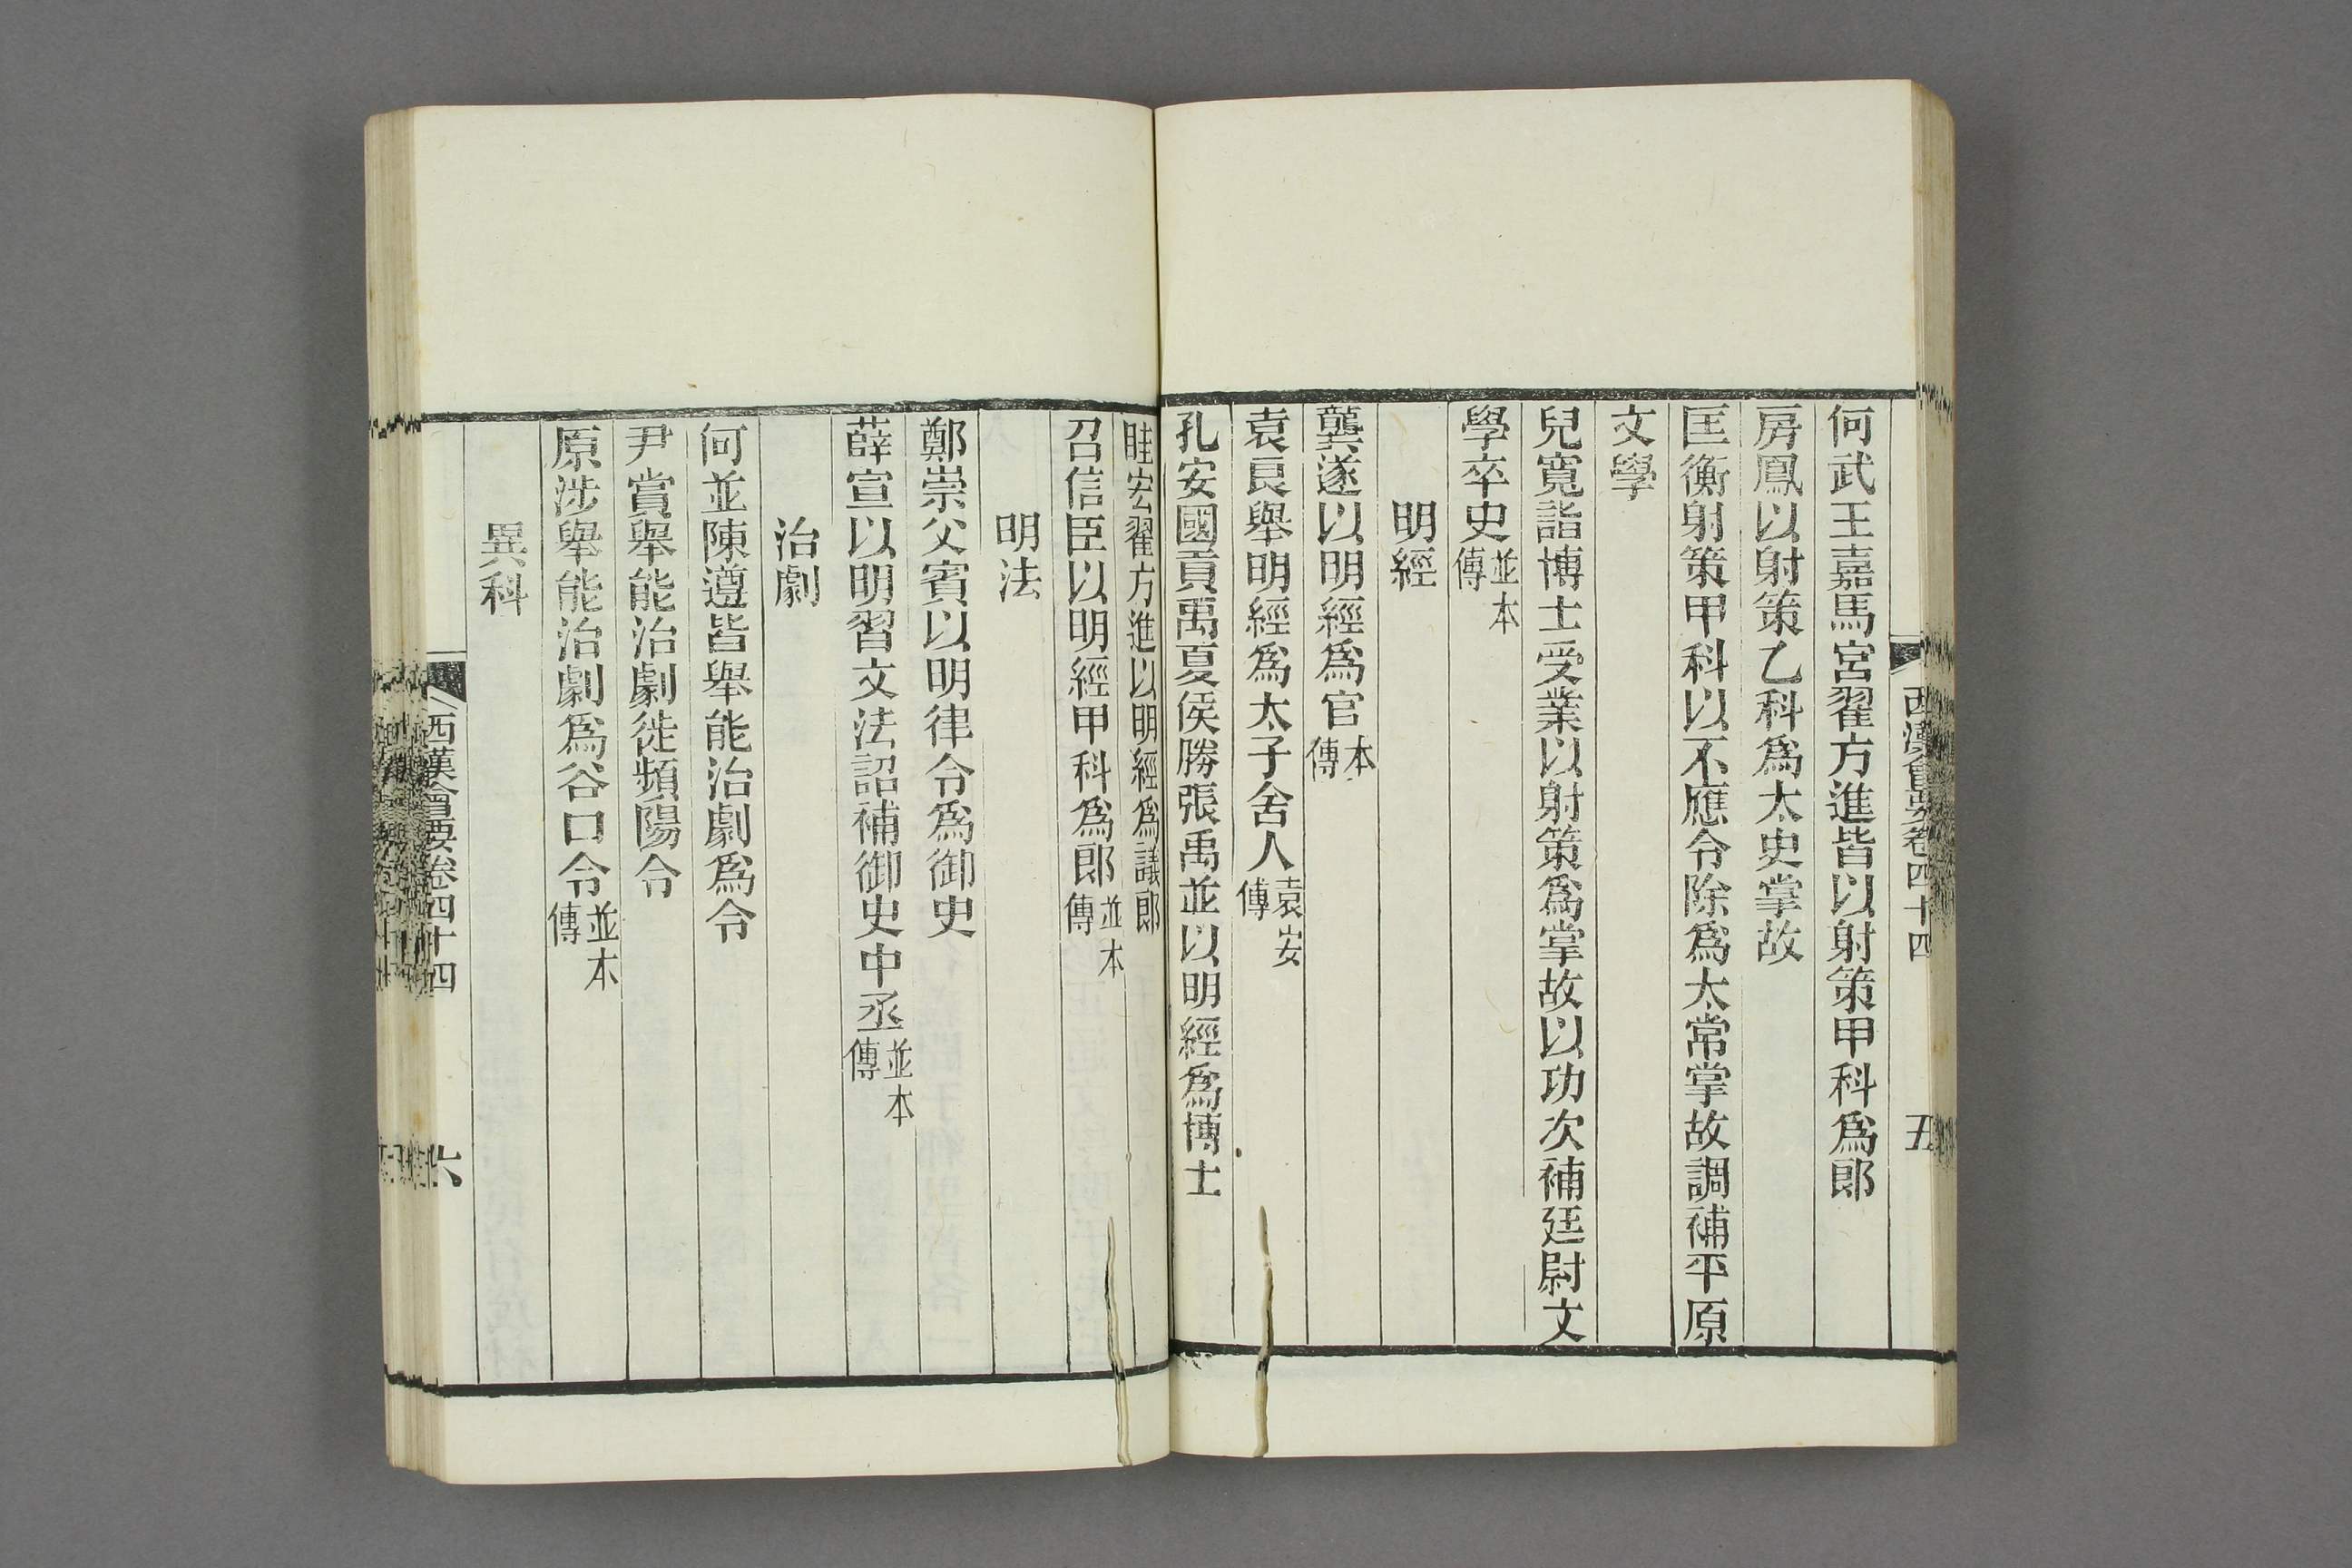 西漢會要卷四十四 五
何武王嘉馬宮翟方進皆以射策甲科爲郎
房鳳以射策乙科爲太史掌故
匡衡射策甲科以不應令除爲太常掌故調補平原
文學
兒寬詣博士受業以射策爲掌故以功次補廷尉文
學卒史並本傳
明經
龔遂以明經爲官本傳
袁良舉明經爲太子舍人袁安傳
孔安國貢禹夏侯勝張禹並以明經爲博士
眭宏翟方進以明經爲議郎
召信臣以明經甲科爲郎並本傳
明法
鄭崇父賓以明律令爲御史
薛宣以明習文法詔補御史中丞並本傳
治劇
何並陳遵皆舉能治劇爲令
尹賞舉能治劇徙頻陽令
原涉舉能治劇爲谷口令並本傳
異科
西漢會要卷四十四 六